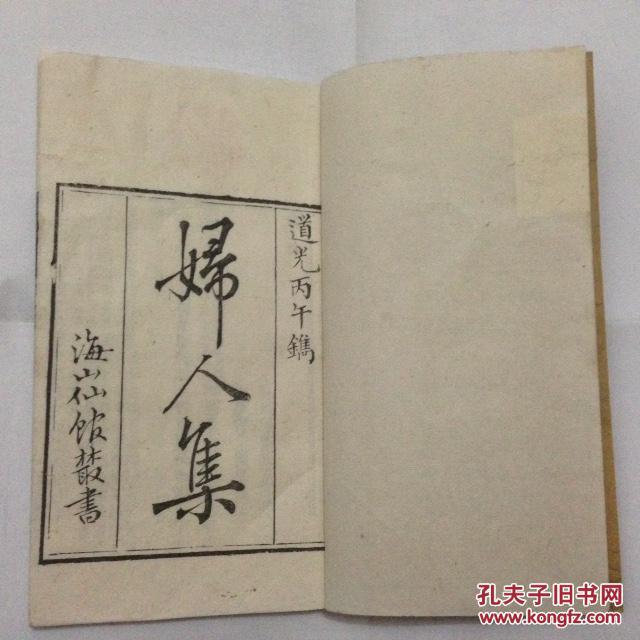 道光丙午鐫
婦人集
海山仙館叢書
孔夫子旧书网
www.kongfz.com